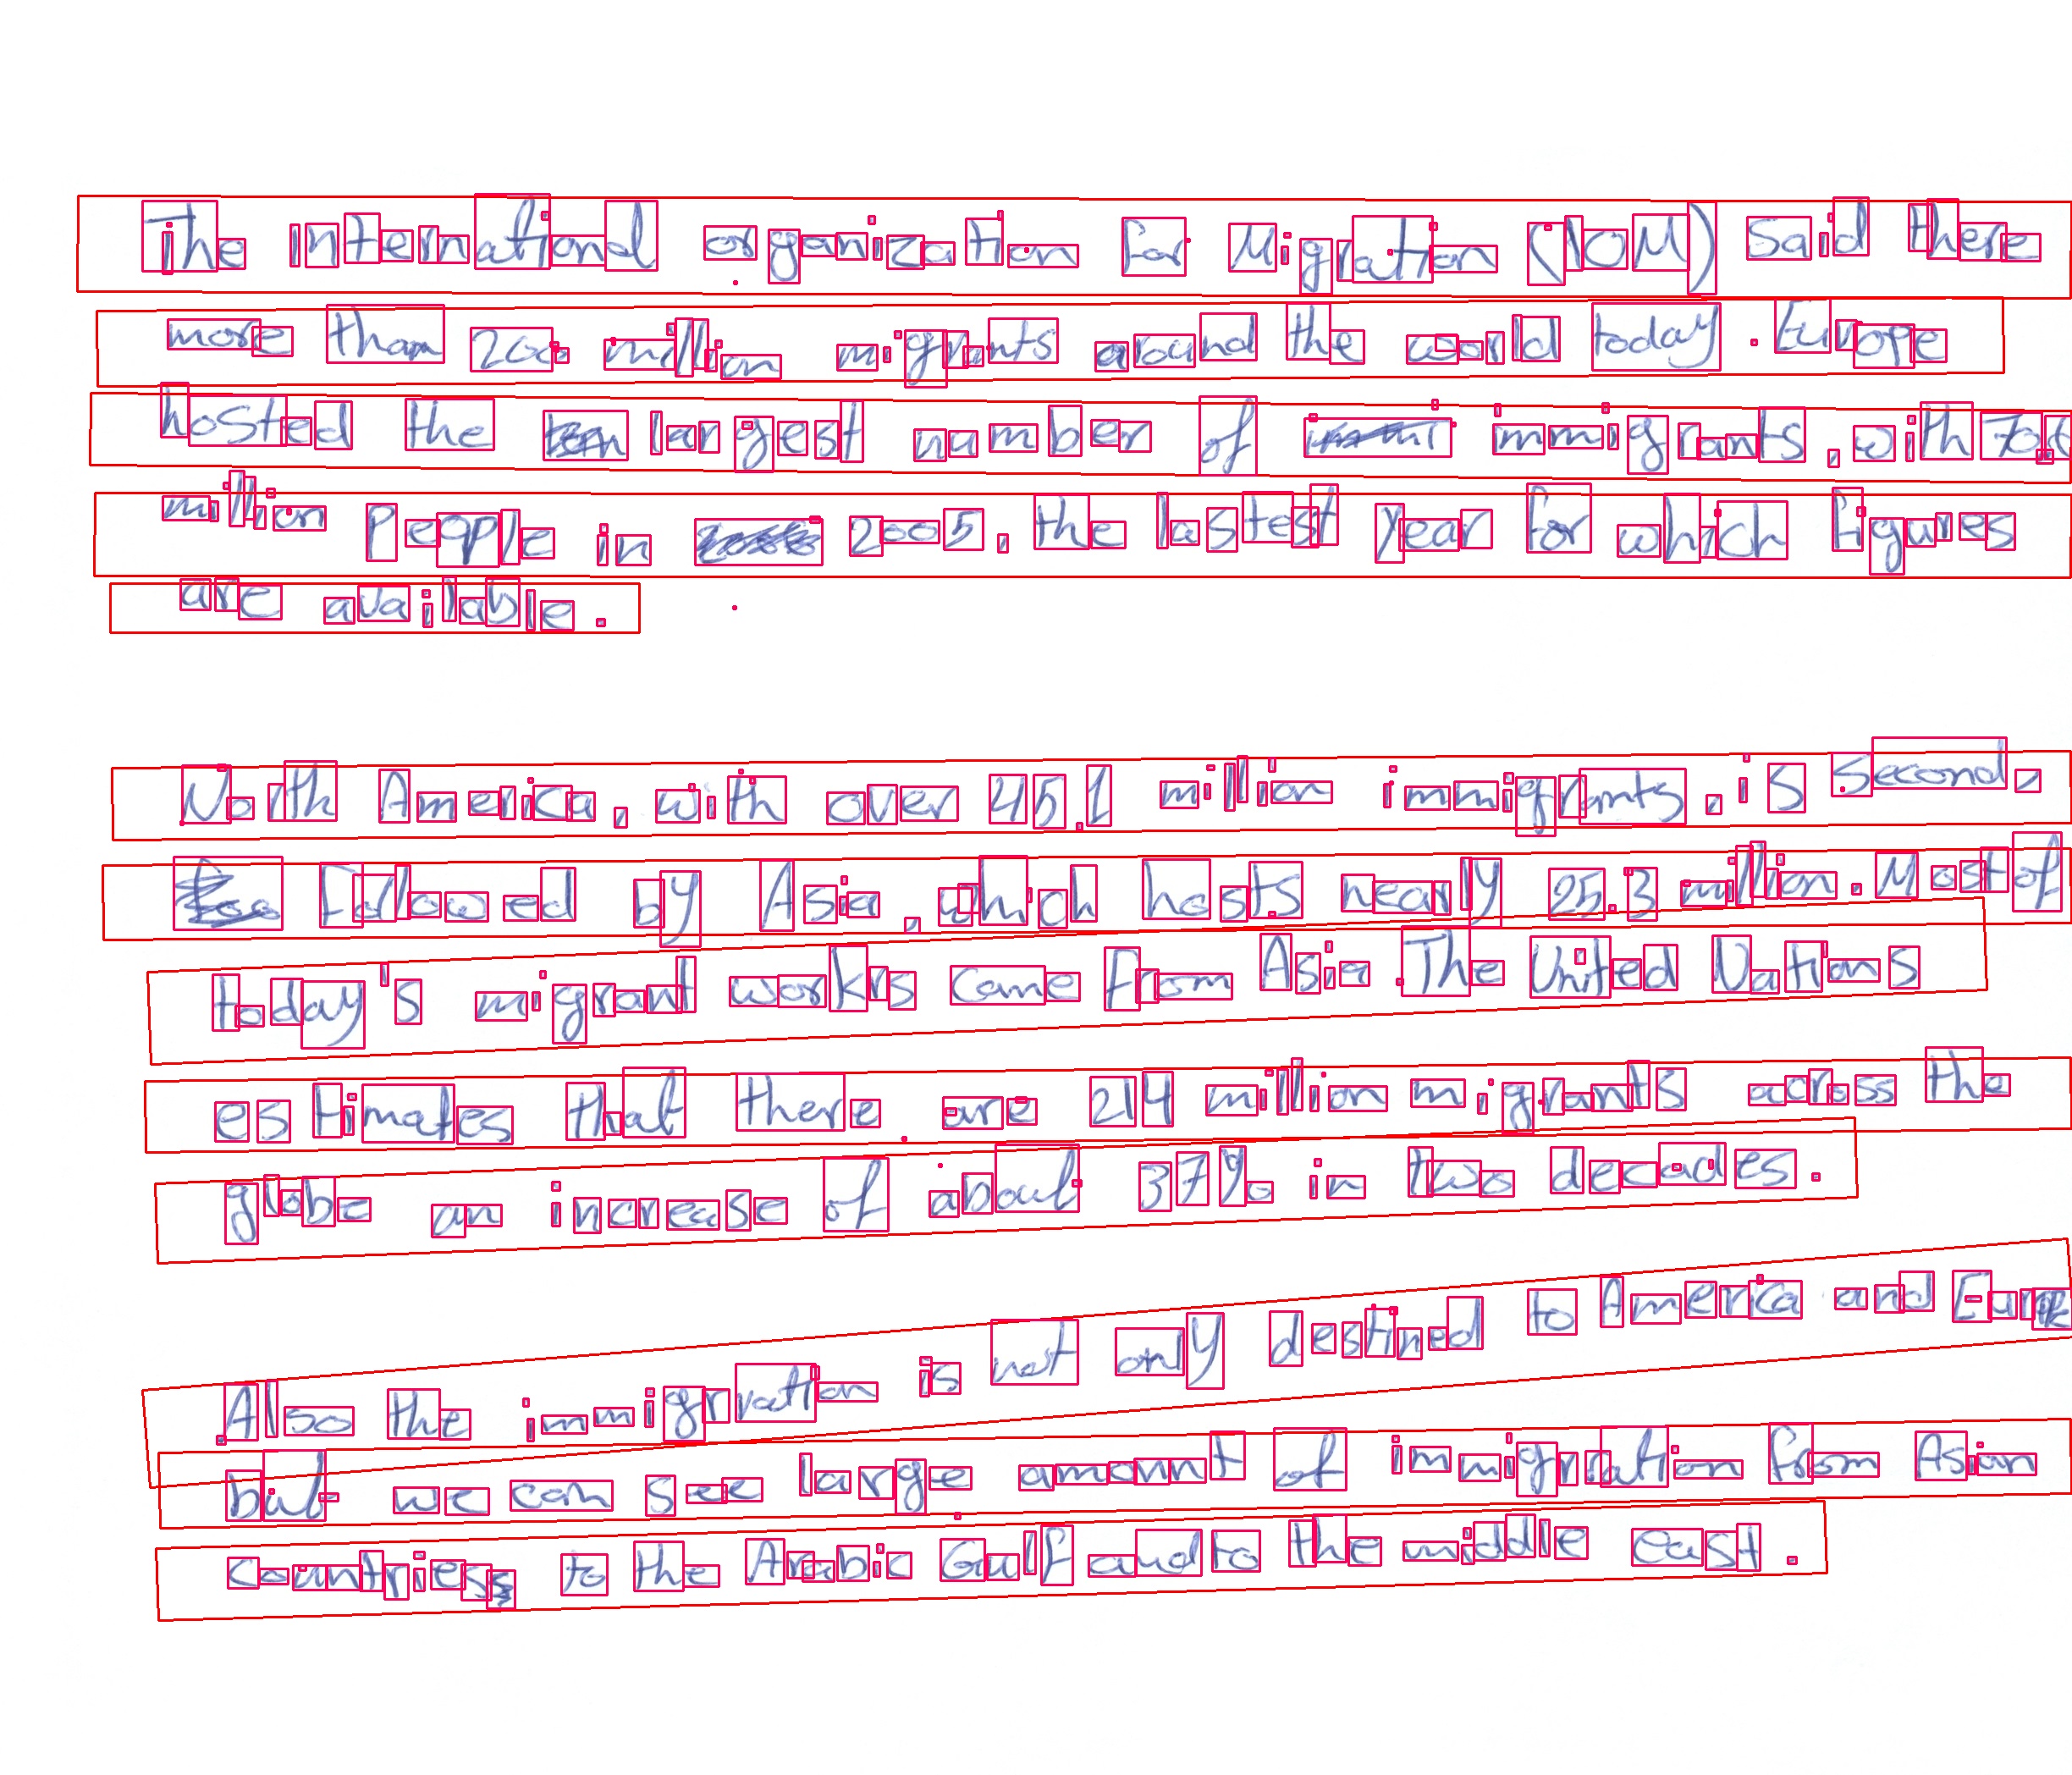 The International organization for Migration (IOM) said there
more than 200 million migrants around the world today. Europe
hosted the largest number of immigrants, with 70.6
million People in 2005, the lastest year for which figures
are available.
North America, with over 45.1 million immigrants, is Second,
Followed by Asia, which hosts nearly 25.3 million. Most of
today's migrant workrs came from Asia. The United Nations
estimates that there are 214 million migrants across the
globe an increase of about 37% in two decades.
Also the immigration is not only destined to America and Europe
but we can see large amount of immigration from Asian
countries to the Arabic Gulf and to the middle east.